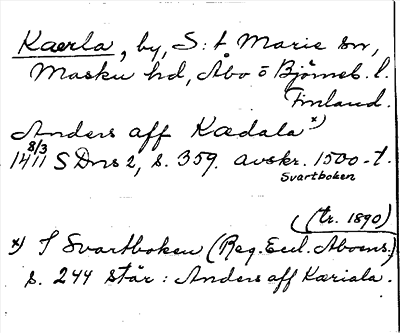 Kaerla, by, S:t Marie sn,
Masku hd, Åbo o Björneb. l.
Finland.
Anders aff Kædala x)
8/3
1411 SDns 2, s. 359. avskr. 1500-t.
Svartboken
(tr. 1890)
x) I Svartboken (Reg. Eccl. Aboens.)
s. 244 står: Anders aff Kæriala.